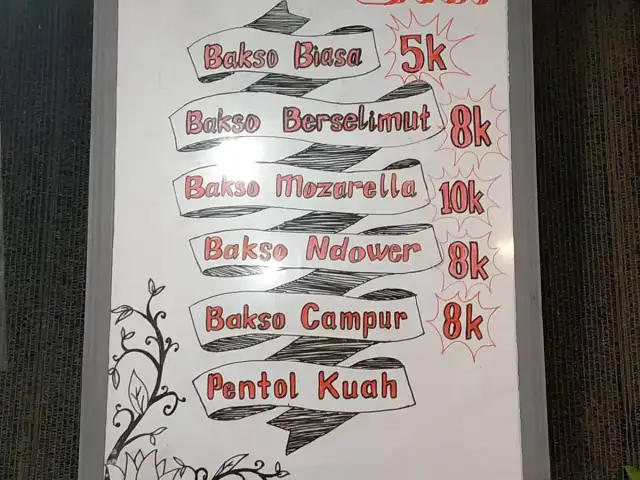 Bakso Biasa 5k
Bakso Berselimut 8k
Bakso Mozarella 10k
Bakso Ndower 8k
Bakso Campur 8k
Pentol Kuah